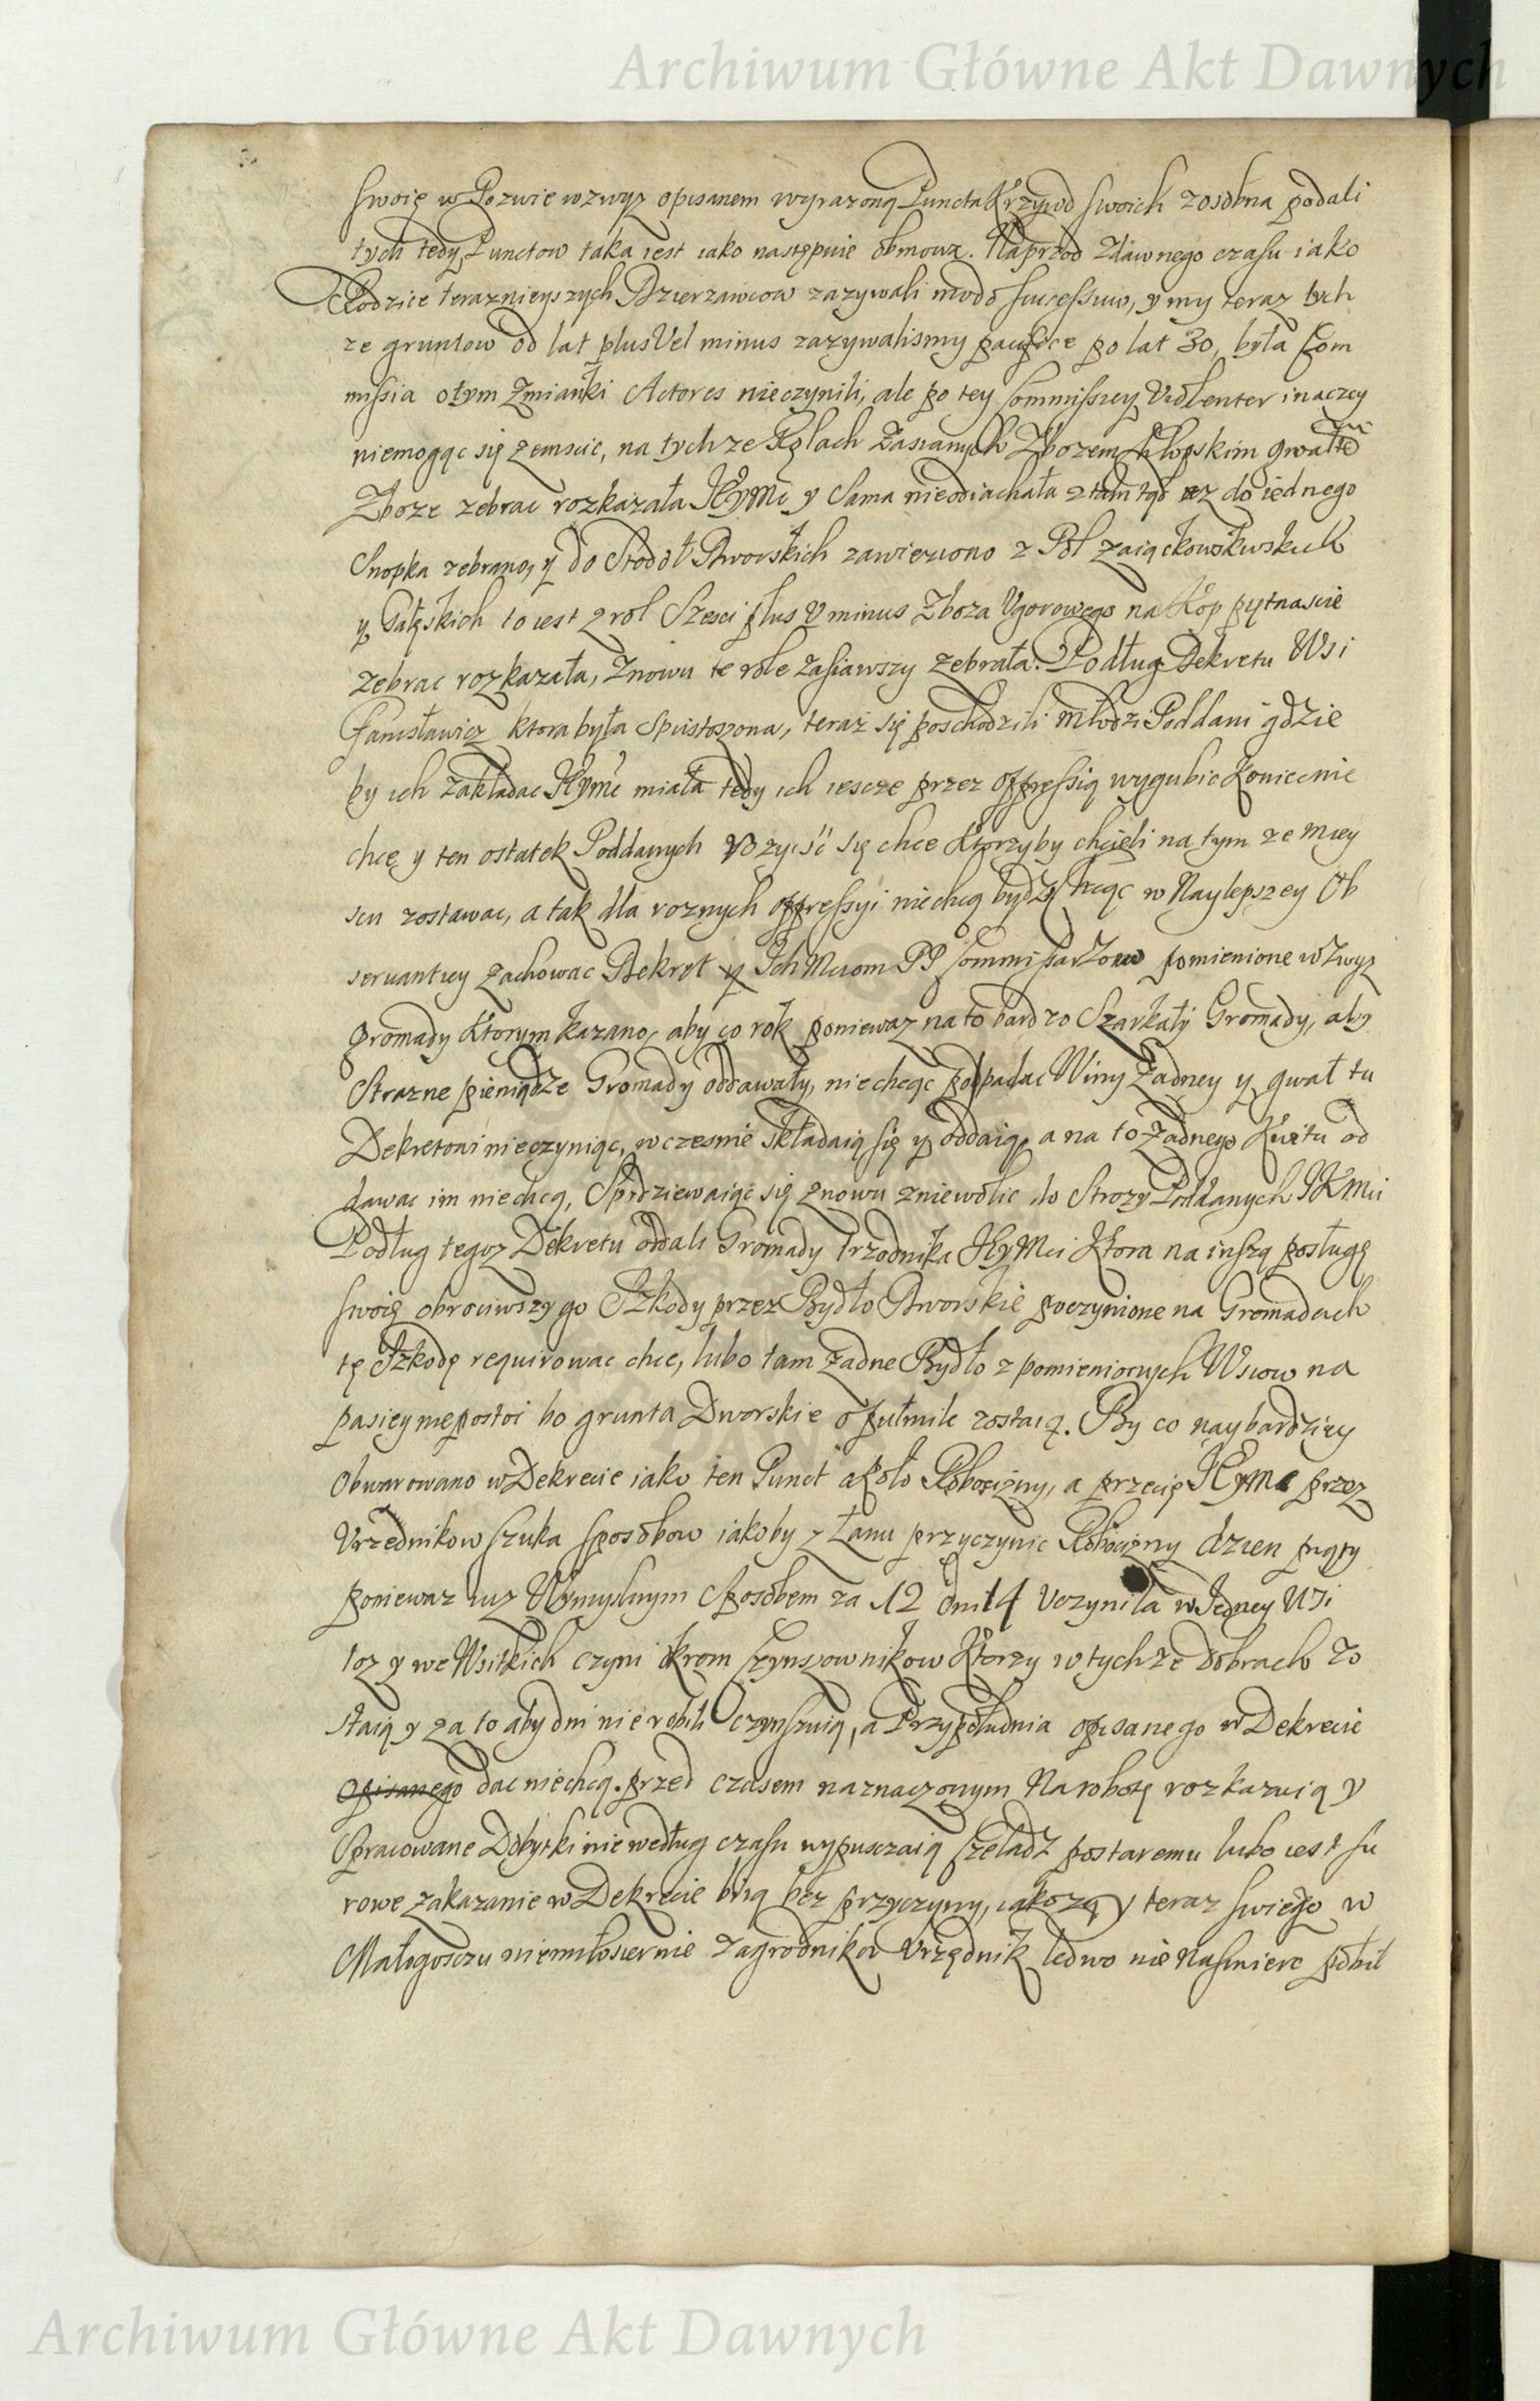 Archiwum Główne Akt Dawnych
swoię w Pozwie wzwyz opisanem wyrazoną Puncta Krzywd swoich zosobna podali
tych tedy Punctow taka iest iako następuie obmowa. Naprzod Zdawnego czasu iako
Rodzice teraznieyszych Dzierzawcow zazywali modo successiuo, y my teraz tych
ze gruntow od lat plus Vel minus zazywalismy pacifice po lat 30, była Com
missia otym Zmianki Actores nieczynili, ale po tey Commissiey Violenter inaczey
niemogąc się zemscic, na tychze Rolach Zasianych Zbozem Chłopskim gwałtem
Zboze zebrac rozkazała JEyMc y Sama nieodiachała ztamtąd az do iednego
Snopka zebrano, y do Stodoł Dworskich zawieziono z Pol
y to iest z rol Szesci plus V minus Zboza Ugorowego na Kop pętnascie
zebrac rozkazała, Znowu te role zasiawszy zebrała. Podług Dekretu Wsi
ktora była Spustoszona, teraz się poschodzili młodzi Poddani gdzie
by ich zakładac JEyMc miała tedy ich iescze przez oppressią wygubic Koniecnie
chcę y ten ostatek Poddanych się chce Ktorzyby chcieli na tym ze miey
scu zostawac, a tak dla roznych oppressyi niechcą bydz chcąc w Naylepszey Ob
seruantiey zachowac Dekret y Ich Mciom PP Commissarzow pomienione wzwyz
gromady Ktorym kazano, aby co rok poniewaz na to bardzo Szarkały Gromady, aby
Strazne pieniądze Gromady oddawały, niechcąc podpadac Winy Zadney y gwałtu
Dekretowi nieczyniąc, wczesnie składaią się y oddaią, a na to Zadnego Kwitu od
dawac im niechcą, Spodziewaiąc się znowu zniewolic do Strozy Poddanych JKMci
Podług tegoz Dekretu oddali Gromady Trzodnika JEyMci Ktora na inszą posługę
swoię obrociwszy go Szkody przez Bydło Dworskie poczynione na Gromadach
tę Szkodę requirowac chce, lubo tam zadne Bydło z pomienionych Wsiow na
pasiey niepostoi bo grunta Dworskie o pułmile zostaią. By co naybardziey
Obwarowano w Dekrecie iako ten Punct około Roboczizny, a przecię JEyMc przez
Vrzednikow szuka sposobow iakoby z Łanu przyczynic Roboczizny dzien piąty
poniewaz iuz Wymyslnym Sposobem za 12 dni 14 Vczyniła w Iedney Wsi
toz y we Wsitkich czyni okrom Czynszownikow Ktorzy w tychze dobrach zo
staią y za to aby dni nie robili czynszuią, a Przypołudnia opisanego w Dekrecie
opisanego dac niechcą. przed czasem naznaczonym Na robotę rozkazuią y
Spracowane Dobytki nie według czasu wypusczaią Czeladz postaremu lubo iest su
rowe zakazanie w Dekrecie biią bez przyczyny, iakosz y teraz swiezo w
Małogosczu niemiłosiernie Zagrodnikow Vrzędnik ledwo nie nasmierc pobił
Archiwum Główne Akt Dawnych